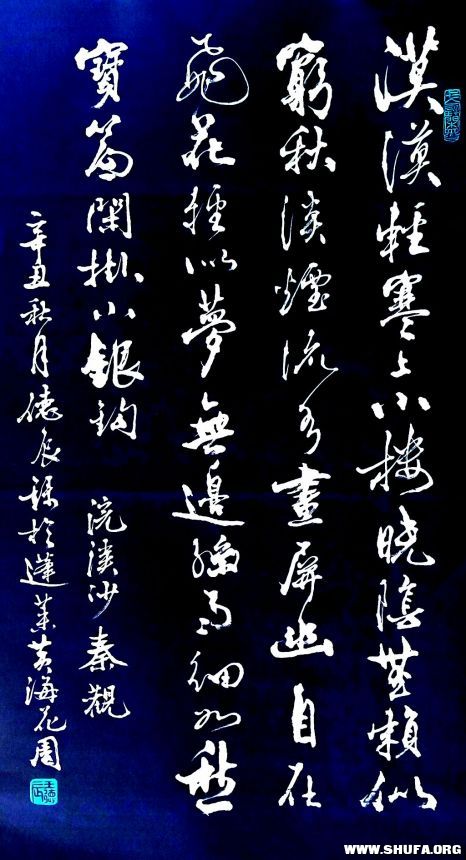 漠漠輕寒上小樓曉陰無賴似
窮秋淡煙流水畫屏幽自在
飛花輕似夢無邊絲雨細如愁
寶簾閑掛小銀鈎 浣溪沙秦觀
辛丑秋月德辰錄於蓬萊黃海花園
WWW.SHUFA.ORG